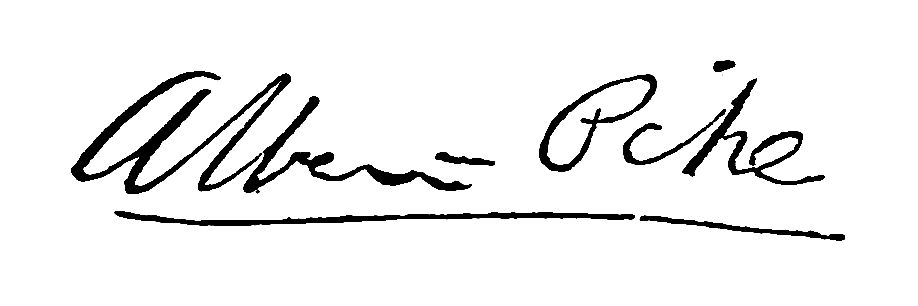 Albert Pike